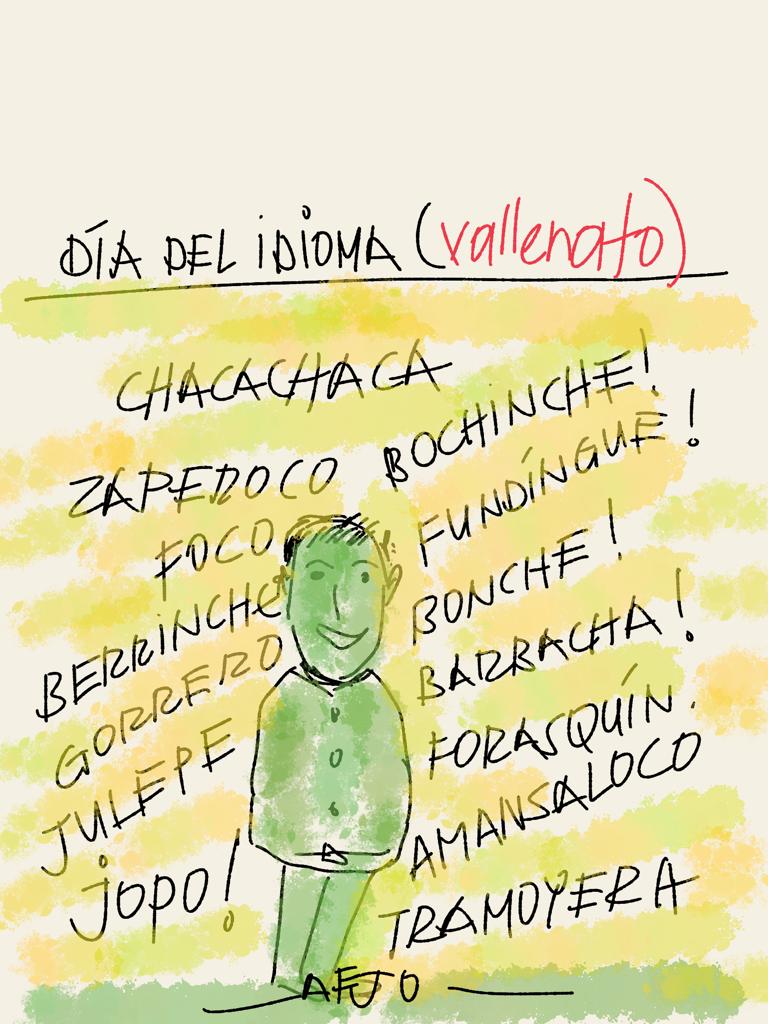 DÍA DEL IDIOMA (vallenato)
CHACACHACA
BOCHINCHE!
ZAPEROCO
FUNDÍNGUE!
FOCO
BONCHE!
BERRINCHE
BARRACHA!
GORRERO
FORASQUÍN.
JULEPE
AMANSALOCO
jopo!
TRAMOYERA
AFJO